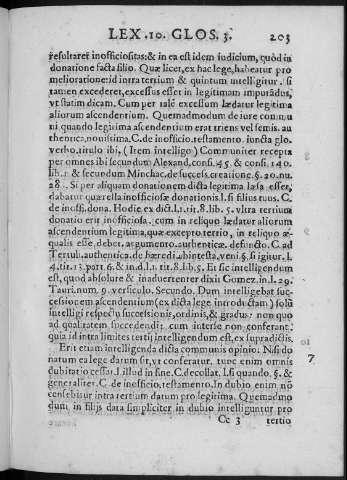 LEX .10. GLOS. 3. 203
resoltaret inofficiositas: & in ea est idem iudicium, quòd in
donatione facta filio. Quæ licet, ex hac lege, habeatur pro
melioratione: id intra tertium & quintum intelligitur. si
tamen excederet, excessus esset in legitimam imputãdus,
vt statim dicam. Cum per talẽ excessum lædatur legitima
aliorum ascendentium. Quemadmodum de iure commu
ni quando legitima ascendentium erat triens vel semis. au
thentica, nouissima. C. de inofficio. testamento. iuncta glo.
verbo. titulo ibi, (Item intelligo) Communiter recepta
per omnes ibi secundum Alexand, consi. 45. & consi. 140.
lib. 1. & secundum Minchac. de success. creatione. §. 20. nu.
28. Si per aliquam donationem dicta legitima læsa esset,
dabatur quærella inofficiosæ donationis l. si filius tuus. C.
de inoffi. dona. Hodie ex dict. l. 1. tit. 8. lib. 5. vltra tertium
donatio erit inofficiosa. cum in reliquo lædatur aliorum
ascendentium legitima, quæ excepto tertio, in reliquo æ-
qualis esse, debet, argumento. authenticæ. defuncto. C. ad
Tertull. authentica. de hæredi. ab intesta, veni. §. si igitur. l.
4. tit. 13. part. 6. & in. d. l. 1. tit. 8. lib. 5. Et sic intelligendum
est, quod absolute & inaduertenter dixit Gomez. in. l. 29.
Tauri. num. 9. versiculo. Secundo. Dum intelligebat suc-
cessionem ascendentium (ex dicta lege introductam) solũ
intelligi respectu successionis, ordinis, & gradus: non quo
ad qualitatem succedendi: cum interse non conferant.
quia id intra limites tertij intelligendum est, ex supradictis.
Erit etiam intelligenda dicta communis opinio. Nisi do
natum ea lege datum sit, vt conferatur. tunc enim omnis
dubitatio cessat. l. illud in fine. C. de collat. l. si quando. §. &
generaliter. C. de inofficio. testamento. In dubio enim nõ
censebitur intra tertium datum pro legitima. Quemadmo
dum, in filijs data simpliciter in dubio intelliguntur pro
7
Cc 3 tertio